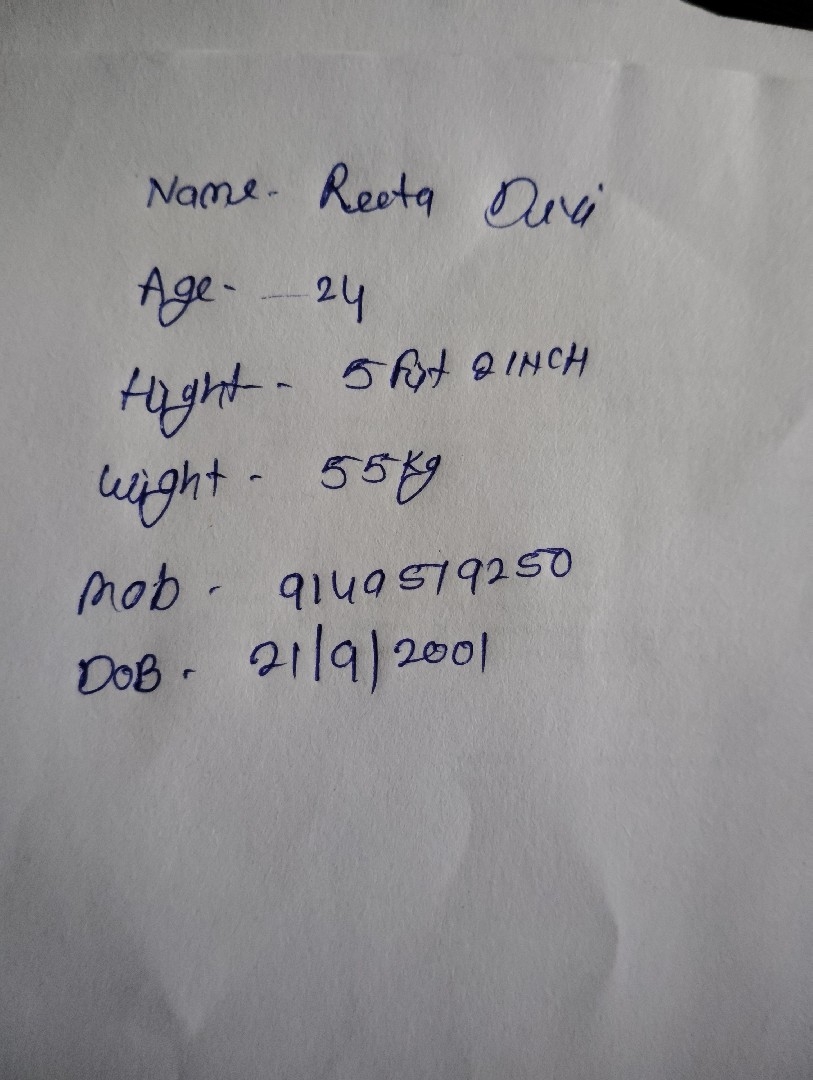 Name - Reeta Devi
Age - 24
Hight - 5 Fut 2 INCH
Weight - 55kg
Mob - 9149519250
DOB - 21/9/2001